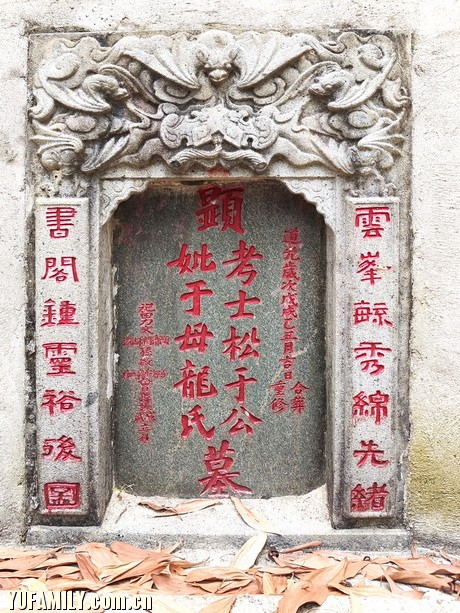 雲峯毓秀綿先緒
道光歲次戊戌乙丑月吉日
合葬
重修
顯
考士松于公
妣于母龍氏
墓
書閣鍾靈裕後圖
YUFAMILY.com.cn